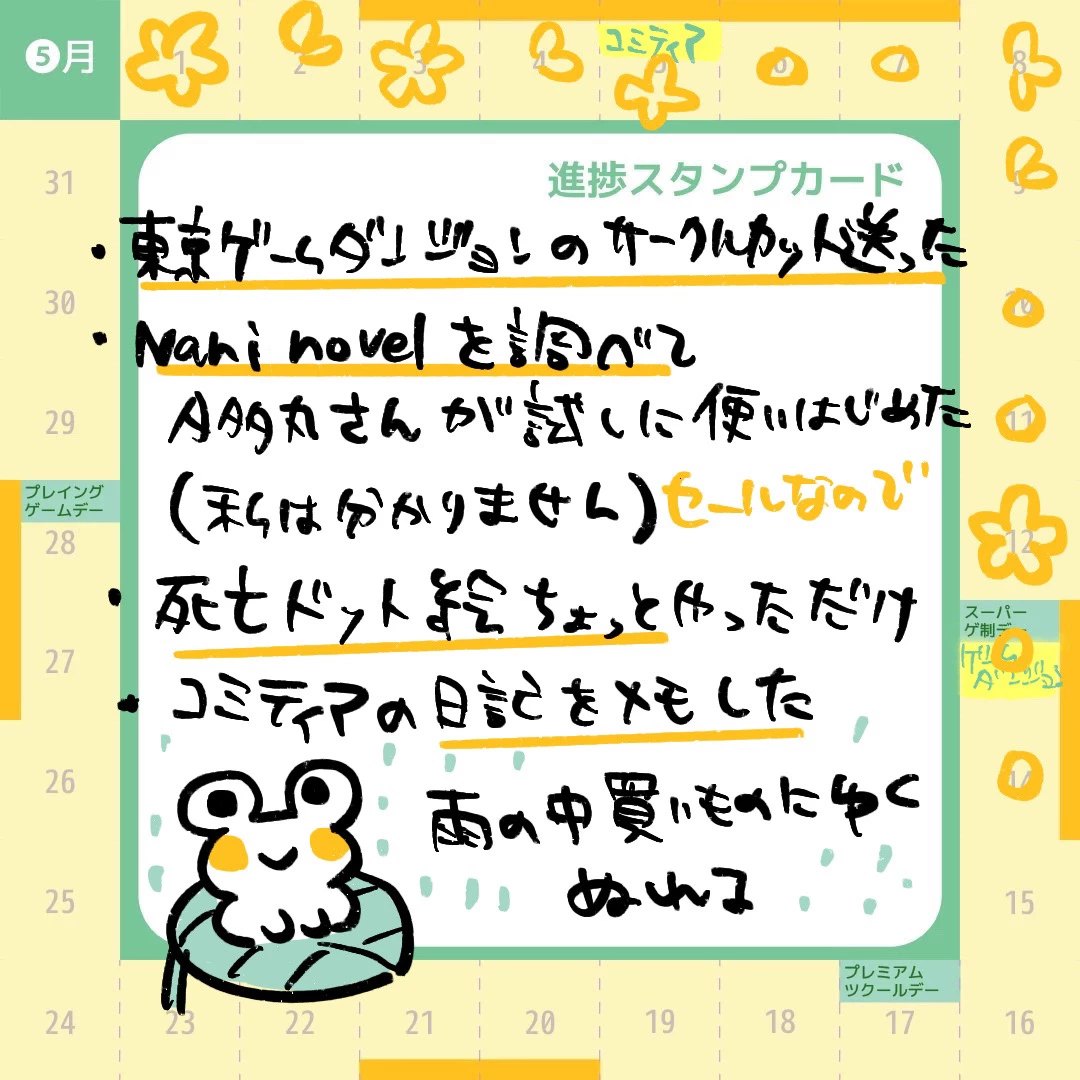 5月
1
2
3
4
コミティア
5
6
7
8
9
10
11
12
スーパー
ゲ制デー
ゲーム
ダンジョン
14
15
16
プレミアム
ツクールデー
17
18
19
20
21
22
23
24
25
26
27
28
プレイング
ゲームデー
29
30
31
進捗スタンプカード
・東京ゲームダンジョンのサークルカット送った
・Naninovelを調べて
丸さんが試しに使いはじめた
(私は分かりません)セールなので
・死亡ドット絵ちょっとやっただけ
・コミティアの日記をメモした
雨の中買いものにゆく
ぬれる